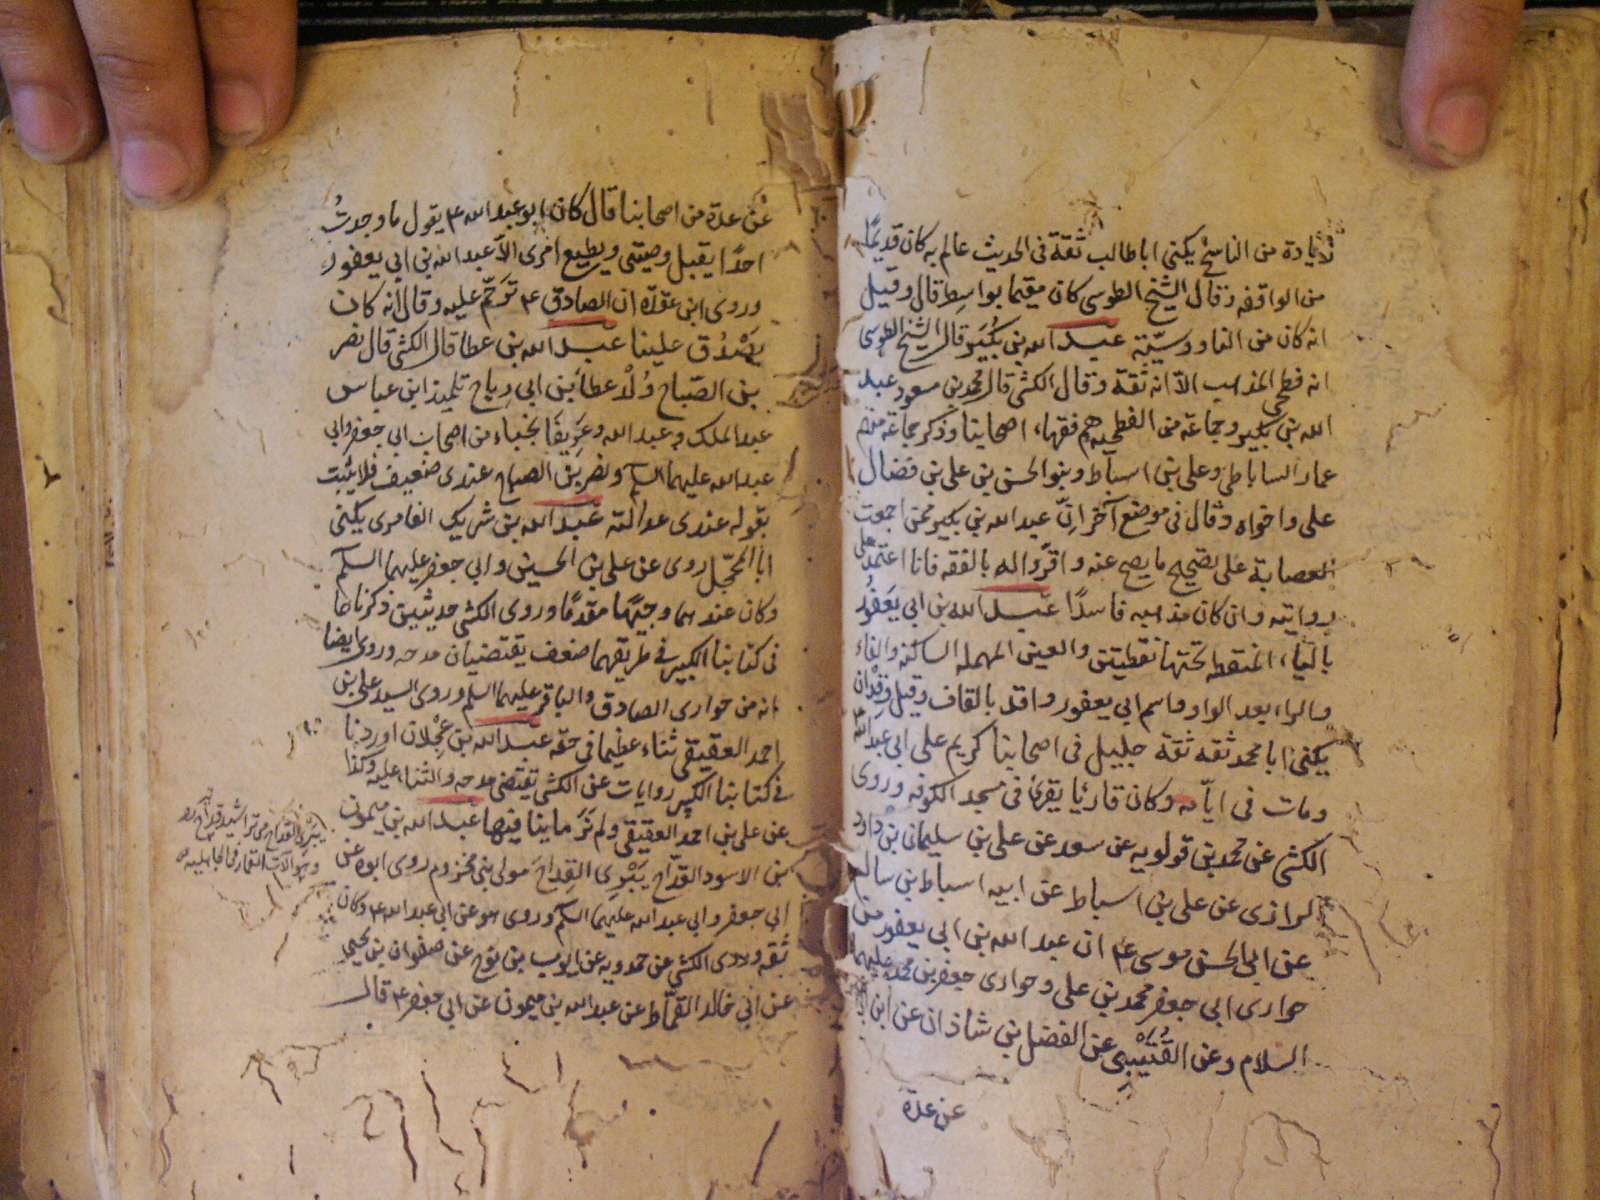 لا يادة من الناسخ يكنى ابا طالب ثقة فى الحديث عالم به كان قديمًا
من الواقفه وقال الشيخ الطوسى كان مقيما بواسط قال وقيل
انه كان من الناووسيّة عبد الله بن بُكَير قال الشيخ الطوسى
انه فطحى المذهب الاّ انه ثقة وقال الكشى قال محمد بن مسعود عبد
الله بن بكير وجماعة من الفطحيه هم فقهاء اصحابنا وذكر جماعة منهم
عمار الساباطى وعلى بن اسباط وبنو الحسن بن على بن فضال
على واخواه وقال فى موضع آخر انّ عبد الله بن بكير ممن اجمعت
العصابة على تصحيح ما يصح عنه واقرّوا له بالفقه فانا اعتمد على
روايته وان كان مذهبه فاسدًا عبد الله بن ابى يَعفُور
بالياء المنقطه تحتها نقطتين والعين المهمله الساكنه والفاء
والراء بعد الواو واسم ابى يعفور واقد بالقاف وقيل وقدان
يكنى ابا محمد ثقه ثقة جليل فى اصحابنا كريم على ابى عبد الله ع
ومات فى ايّامه وكان قارئا يقرئ فى مسجد الكوفه وروى
الكشى عن محمد بن قولويه عن سعد عن على بن سليمان بن داود
الرازى عن على بن اسباط عن ابيه اسباط بن سالم
عن ابى الحسن موسى ع ان عبد الله بن ابى يعفور من
حوارى ابى جعفر محمد بن على وحوارى جعفر بن محمد عليهما
السلام وعن القُتَيْبى عن الفضل بن شاذان عن ابن ابى
عن عدة
عن عدة من اصحابنا قال كان ابو عبد الله ع يقول ما وجدتُ
احدًا يقبل وصيتى ويطيع امرى الاّ عبد الله بن ابى يعفور
وروى ابن عقدة ان الصادق ع ترحّم عليه وقال انه كان
يَصْدُق علينا عبد الله بن عطا قال الكشى قال نصر
بن الصبّاح وُلْد عطا بن ابى رباح تلميذ ابن عباس
عبد الملك وعبد الله وعريفا نجباء من اصحاب ابى جعفر وابى
عبد الله عليهما السلم ونصر بن الصباح عندى ضعيف فلا يثبت
بقوله عندى عدالته عبد الله بن شريك العامرى يكنى
ابا المحجّل روى عن على بن الحسين وابى جعفر عليهما السلم
وكان عندهما وجيهًا مقدمًا وروى الكشى حديثين ذكرناهما
فى كتابنا الكبير فى طريقهما ضعف يقتضيان مدحه وروى ايضا
انه من حوارى الصادق والباقر عليهما السلم وروى السيد على بن
احمد العقيقى ثناء عظيما فى حقه عبد الله بن عَجْلان اوردنا
فى كتابنا الكبير روايات عن الكشى تقتضى مدحه والثناء عليه وكذا
عن على بن احمد العقيقى ولم نَرَ ما ينافيها عبد الله بن ميمون
بن الاسود القدّاح يَبْرِى القِداحَ مولى بنى مخزوم روى ابوه عن
ابى جعفر وابى عبد الله عليهما السلم وروى هو عن ابى عبد الله ع وكان
ثقه وروى الكشى عن حمدويه عن ايوب بن نوح عن صفوان بن يحيى
عن ابى خالد القمّاط عن عبد الله بن ميمون عن ابى جعفر ع قال
يبرى القداح
وهو آلات القمار فى الجاهليه